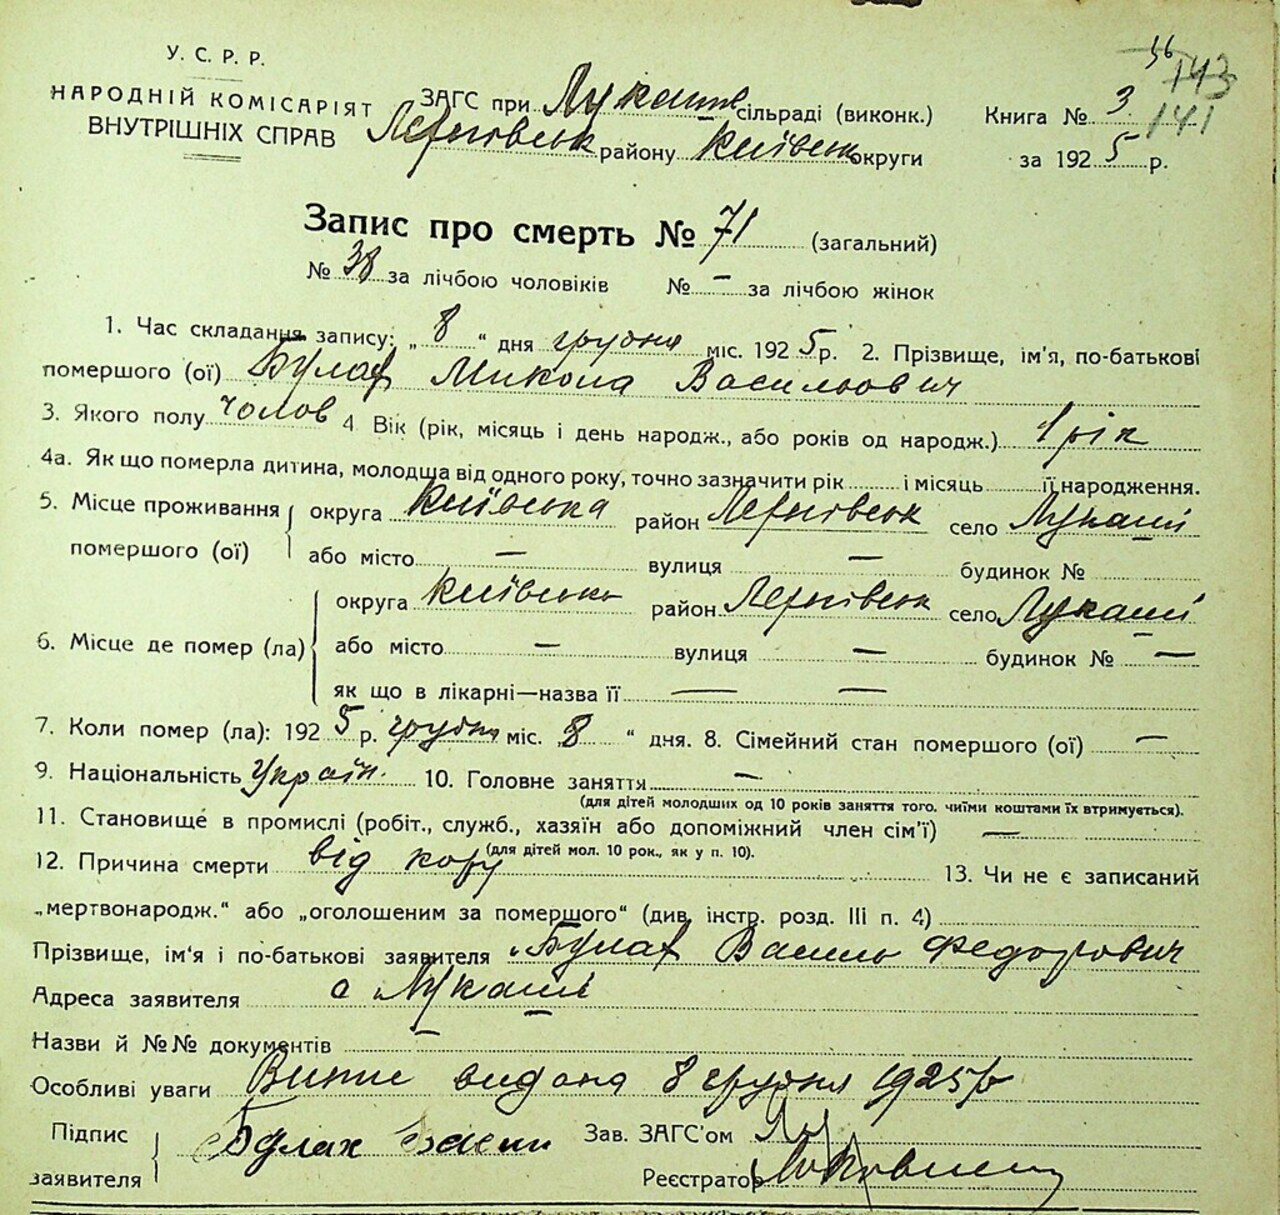 У. С. Р. Р.
НАРОДНІЙ КОМІСАРІЯТ
ВНУТРІШНІХ СПРАВ
ЗАГС при Лукашів сільраді (виконк.)
районy Київськ округи
Книга № 3
за 1925 р.
36
143
141
Запис про смерть № 71 (загальний)
№ 38 за лічбою чоловіків № — за лічбою жінок
1. Час складання запису: „ 8 “ дня грудня міс. 1925 р. 2. Прізвище, ім'я, по-батькові
помершого (ої) Булах Микола Васильович
3. Якого полу чолов 4 Вік (рік, місяць і день народж., або років од народж.) 1 рік
4а. Як що померла дитина, молодща від одного року, точно зазначити рік і місяць її народження.
5. Місце проживання помершого (ої) округа Київська район село Лукаші
або місто — вулиця — будинок №
6. Місце де помер (ла) округа Київська район село Лукаші
або місто — вулиця — будинок № —
як що в лікарні—назва її — —
7. Коли помер (ла): 1925 р. грудня міс. „8 “ дня. 8. Сімейний стан помершого (ої) —
9. Національність Україн. 10. Головне заняття —
(для дітей молодших од 10 років заняття того. чиїми коштами їх втримується).
11. Становище в промислі (робіт., служб., хазяїн або допоміжний член сім'ї) —
(для дітей мол. 10 рок., як у п. 10).
12. Причина смерти від кору 13. Чи не є записаний
„мертвонародж.“ або „оголошеним за помершого“ (див. інстр. розд. III п. 4)
Прізвище, ім'я і по-батькові заявителя Булах Василь Федорович
Адреса заявителя с Лукаші
Назви й №№ документів —
Особливі уваги Випис видана 8 грудня 1925 р
Підпис заявителя Булах Зав. ЗАГС'ом
Реєстратор